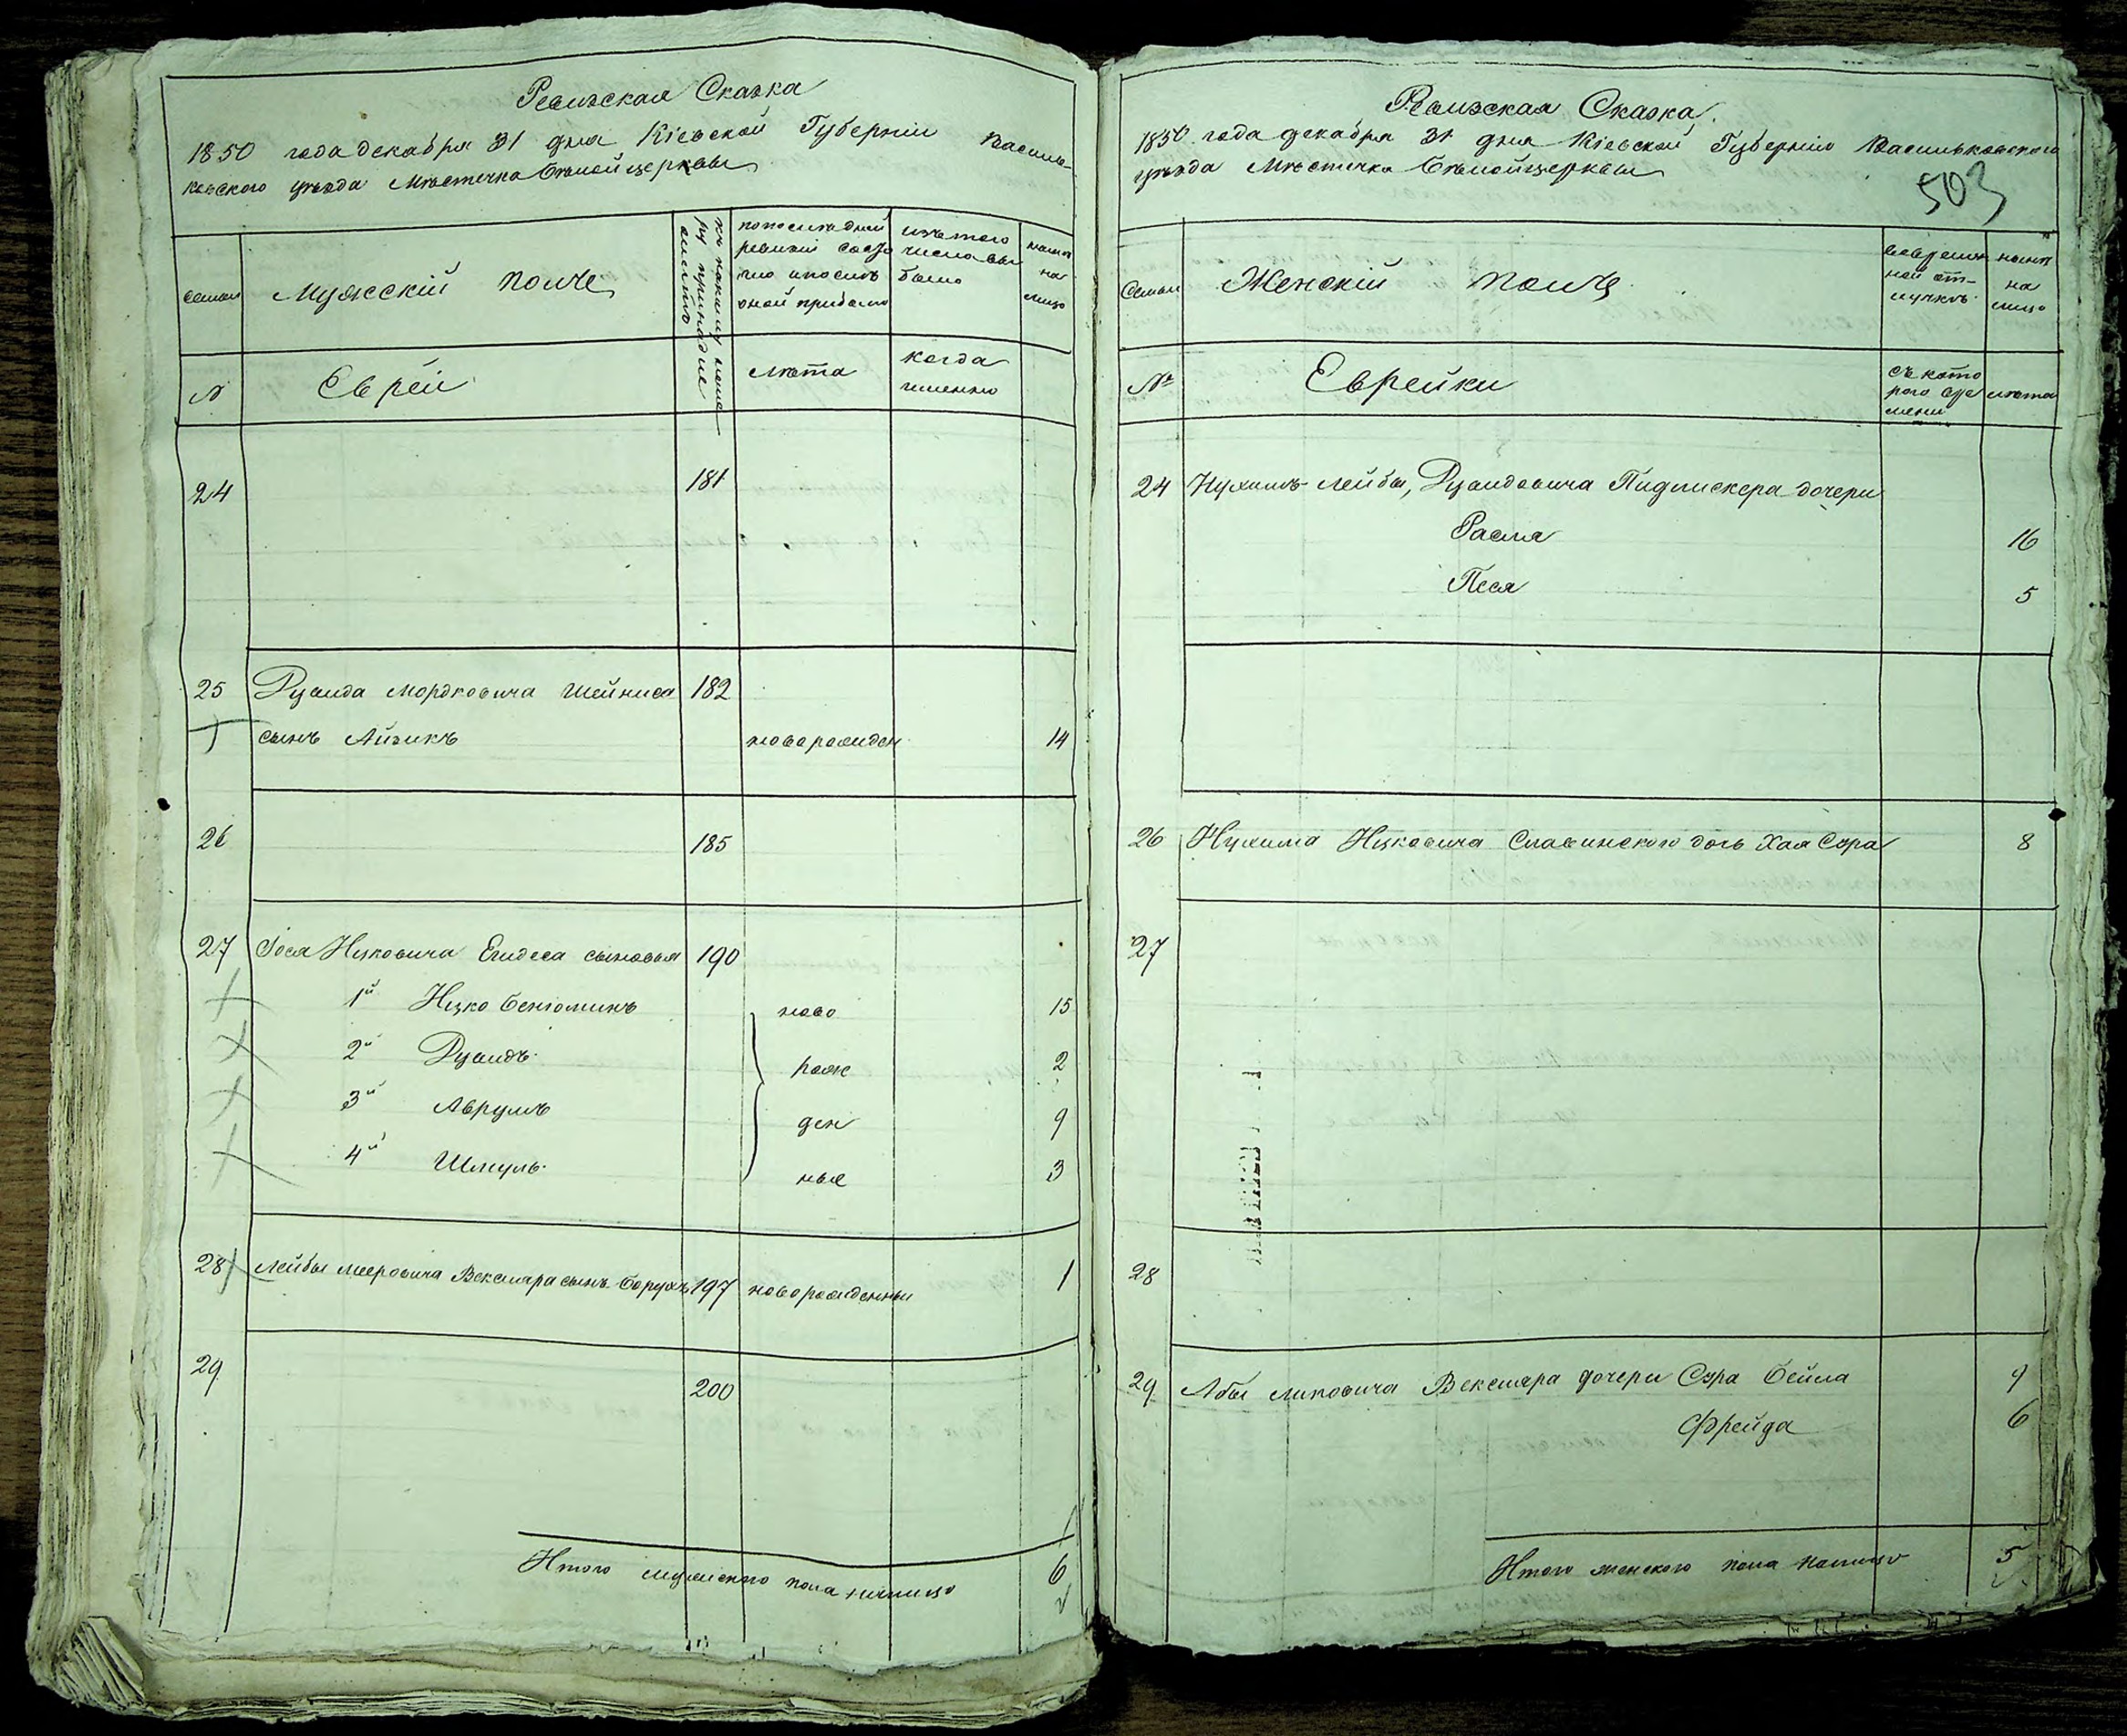 Ревизская Сказка
1850 года декабря 31 дня Кіевской Губерніи Василь-
ковского уѣзда Мѣстечка Бѣлойцеркви
семьи
Мужескій полъ
къ какому номе
ру принадле
житъ
попослѣдней
ревизіи состо
яло и послѣ
оной прибыло
изъ того
числа вы
было
нынѣ
на
лицо
№
Евреи
лѣта
когда
именно
24 181
25 Дувида Мордковича Шейниса 182
сынъ Айзикъ новорожден 14
26 185
27 Іося Ицковича сыновья 190
1й Ицко Беніоминъ ново 15
2й Дувидъ рож 2
3й Аврумъ ден 9
4й Шмуль ные 3
28 Лейбы Мееровича Векслера сынъ Борухъ 197 новорожденный 1
29 200
Итого мужескаго пола налицо 6
Ревизская Сказка.
1850 года декабря 31 дня Кіевской Губерніи Васильковского
уѣзда Мѣстечка Бѣлойцеркви
503
Семьи
Женскій полъ
вовремен
ной от-
лучкѣ
нынѣ
на
лицо
№
Еврейки
съ кото
раго вре
мени
лѣта
24 Нухимъ Лейбы, Дувидовича дочери
Расия 16
Песя 5
26 Нухима Ицковича Славинского дочь Хая Сура 8
27
28
29 Абы Липовича Векслера дочери Сура Бейла 9
Фрейда 6
Итого женского пола налицо 5